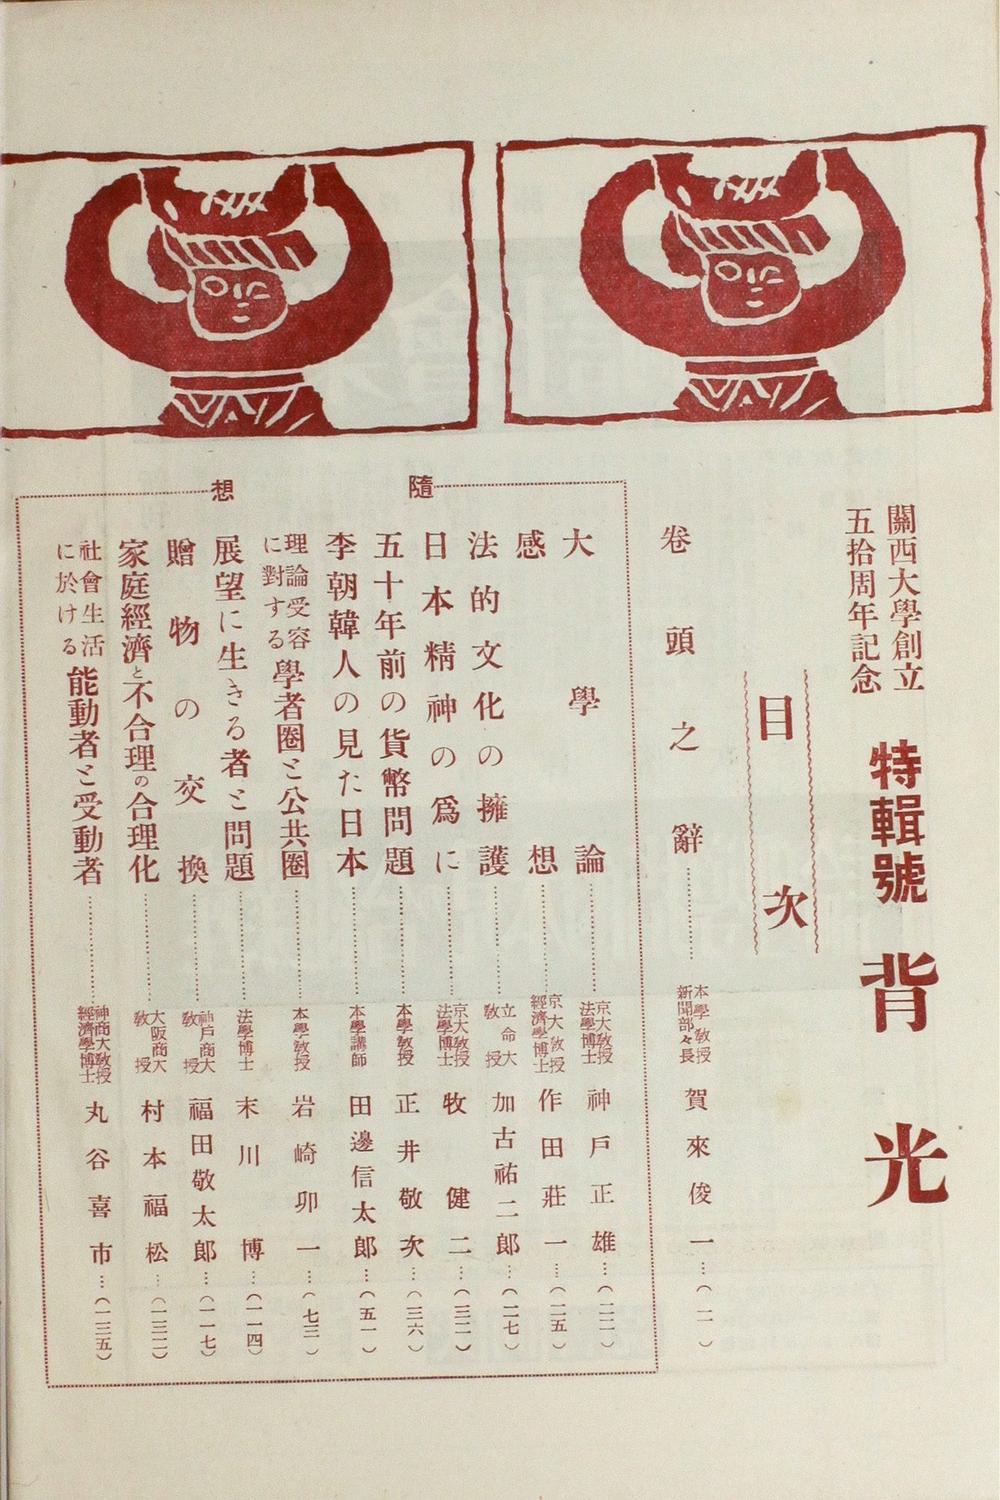 關西大學創立
五拾周年記念
特輯號 背光
目次
卷頭之辭
本學教授
新聞部々長
賀來俊一…(二一)
隨想
大學論
京大教授
法學博士
神戸正雄…(二二)
感想
京大教授
經濟學博士
作田莊一…(二五)
法的文化の擁護
立命大
教授
加古祐二郎…(二七)
日本精神の爲に
京大教授
法學博士
牧健二…(三二)
五十年前の貨幣問題
本學教授
正井敬次…(三六)
李朝韓人の見た日本
本學講師
田邊信太郎…(五一)
理論受容
に對する
學者圈と公共圈
本學教授
岩崎卯一…(七三)
展望に生きる者と問題
法學博士
末川博…(一一四)
贈物の交換
神戸商大
教授
福田敬太郎…(一一七)
家庭經濟と不合理の合理化
大阪商大
教授
村本福松…(一三二)
社會生活
に於ける
能動者と受動者
神商大教授
經濟學博士
丸谷喜市…(一三五)